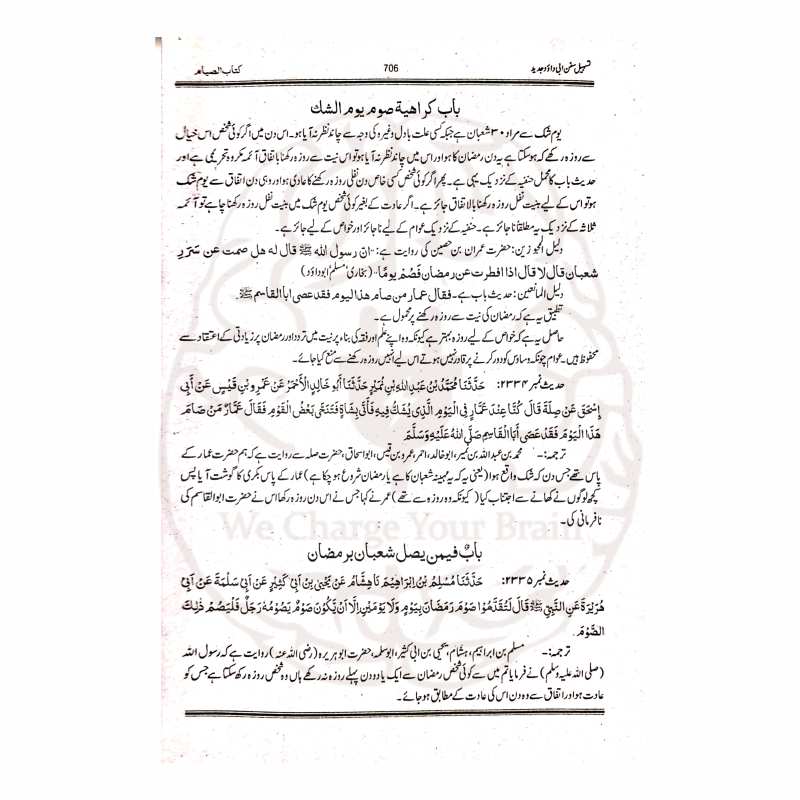 تسہیل سنن ابی داؤد جدید 706 کتاب الصیام
باب کراهیة صوم یوم الشك
یوم شک سے مراد ۳۰ شعبان ہے جبکہ کسی علت بادل وغیرہ کی وجہ سے چاند نظر نہ آیا ہو۔ اس دن میں اگر کوئی شخص اس خیال
سے روزہ رکھے کہ ہوسکتا ہے یہ دن رمضان کا ہو اور اس میں چاند نظر نہ آیا ہو تو اس نیت سے روزہ رکھنا باتفاق آئمہ مکروہ تحریمی ہے اور
حدیث باب کا محمل حنفیہ کے نزدیک یہی ہے۔ پھر اگر کوئی شخص کسی خاص دن نفلی روزہ رکھنے کا عادی ہو اور وہی دن اتفاق سے یوم شک
ہو تو اس کے لیے بنیت نفل روزہ رکھنا بالاتفاق جائز ہے۔ اگر عادت کے بغیر کوئی شخص یوم شک میں بنیت نفل روزہ رکھنا چاہے تو آئمہ
ثلاثہ کے نزدیک یہ مطلقا ناجائز ہے۔ حنفیہ کے نزدیک عوام کے لیے ناجائز اور خواص کے لیے جائز ہے۔
دلیل المجوزین: حضرت عمران بن حصین کی روایت ہے: ان رسول الله ﷺ قال له هل صمت عن سَرَرِ
شعبان قال لا قال اذا افطرت عن رمضان فَصُمْ یومًا (بخاری، مسلم، ابوداؤد)
دلیل المانعین: حدیث باب ہے۔ فقال عمار من صام هذا الیوم فقد عصی ابا القاسم ﷺ۔
تطبیق یہ ہے کہ رمضان کی نیت سے روزہ رکھنے پر محمول ہے۔
حاصل یہ ہے کہ خواص کے لیے روزہ بہتر ہے کیونکہ وہ اپنے علم اور فقہ کی بناء پر نیت میں تردد اور رمضان پر زیادتی کے اعتقاد سے
محفوظ ہیں۔ عوام چونکہ وساوس کو دور کرنے پر قادر نہیں ہوتے اس لیے انہیں روزہ رکھنے سے منع کیا جائے۔
حدیث نمبر ۲۳۳۴: حَدَّثَنَا مُحَمَّدُ بْنُ عَبْدِ اللهِ بْنِ نُمَيْرٍ حَدَّثَنَا أَبُو خَالِدٍ الْأَحْمَرُ عَنْ عَمْرِو بْنِ قَيْسٍ عَنْ أَبِي
إِسْحَقَ عَنْ صِلَةَ قَالَ كُنَّا عِنْدَ عَمَّارٍ فِي الْيَوْمِ الَّذِي يُشَكُّ فِيهِ فَأُتِيَ بِشَاةٍ فَتَنَحَّى بَعْضُ الْقَوْمِ فَقَالَ عَمَّارٌ مَنْ صَامَ
هَذَا الْيَوْمَ فَقَدْ عَصَى أَبَا الْقَاسِمِ صَلَّى اللهُ عَلَيْهِ وَسَلَّمَ
ترجمہ:۔ محمد بن عبد اللہ بن نمیر، ابو خالد، احمر، عمرو بن قیس، ابو اسحاق، حضرت صلہ سے روایت ہے کہ ہم حضرت عمار کے
پاس تھے جس دن کہ شک واقع ہوا (یعنی یہ کہ یہ مہینہ شعبان کا ہے یا رمضان شروع ہوچکا ہے) عمار کے پاس بکری کا گوشت آیا پس
کچھ لوگوں نے کھانے سے اجتناب کیا (کیونکہ وہ روزہ سے تھے) عمر نے کہا جس نے اس دن روزہ رکھا اس نے حضرت ابوالقاسم کی
نافرمانی کی۔
We Charge Your Brain
بابٌ فیمن یصل شعبان برمضان
حدیث نمبر ۲۳۳۵: حَدَّثَنَا مُسْلِمُ بْنُ إِبْرَاهِيمَ نَا هِشَامٌ عَنْ يَحْيَى بْنِ أَبِي كَثِيرٍ عَنْ أَبِي سَلَمَةَ عَنْ أَبِي
هُرَيْرَةَ عَنِ النَّبِيِّ ﷺ قَالَ لَا تُقَدِّمُوا صَوْمَ رَمَضَانَ بِيَوْمٍ وَلَا يَوْمَيْنِ إِلَّا أَنْ يَكُونَ صَوْمٌ يَصُومُهُ رَجُلٌ فَلْيَصُمْ ذٰلِكَ
الصَّوْمَ
ترجمہ:۔ مسلم بن ابراہیم، ہشام، یحییٰ بن ابی کثیر، ابوسلمہ، حضرت ابوہریرہ (رضی اللہ عنہ) روایت ہے کہ رسول اللہ
(صلی اللہ علیہ وسلم) نے فرمایا تم میں سے کوئی شخص رمضان سے ایک یا دو دن پہلے روزہ نہ رکھے ہاں وہ شخص روزہ رکھ سکتا ہے جس کو
عادت ہو اور اتفاق سے وہ دن اس کی عادت کے مطابق ہوجائے۔